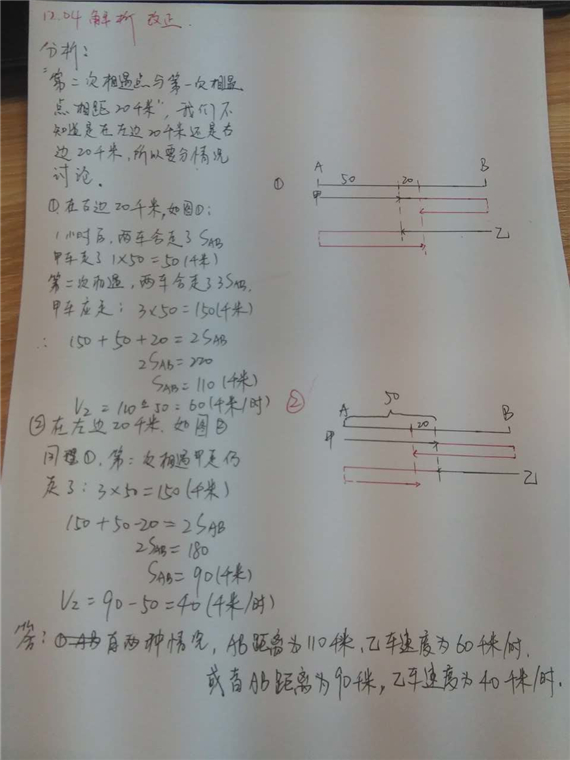 12.04 解析 改正.
分析：
"第二次相遇点与第一次相遇
点相距20千米"，我们不
知道是在左边20千米还是右
边20千米，所以要分情况
讨论。
①在右边20千米，如图①：
1小时后，两车合走了SAB
甲车走了1×50=50(千米)
第二次相遇，两车合走了3SAB,
甲车应走：3×50=150(千米)
: 150+50+20=2SAB
2SAB=220
SAB=110(千米)
V乙=110-50=60(千米/时)
②在左边20千米，如图②
同理①，第二次相遇甲走仍
走了：3×50=150(千米)
150+50-20=2SAB
2SAB=180
SAB=90(千米)
V乙=90-50=40(千米/时)
答：有两种情况，AB距离为110千米，乙车速度为60千米/时.
或者AB距离为90千米，乙车速度为40千米/时.
①
A B
50 20
甲
乙
②
50
A B
20
甲
乙